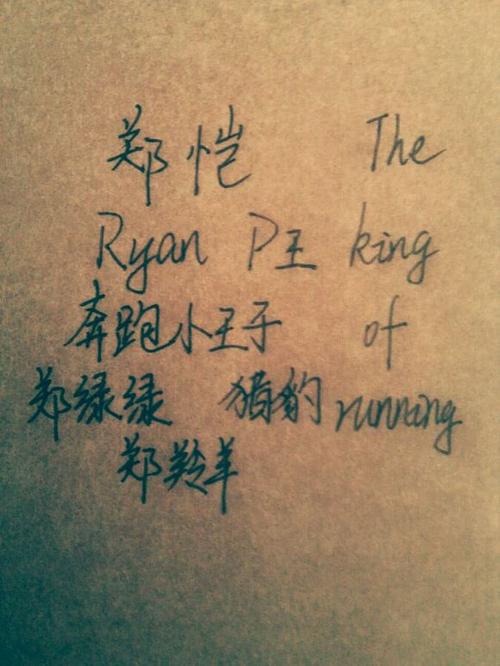 郑恺 The
Ryan P王 king
奔跑小王子 of
郑绿绿 猎豹 running
郑羚羊